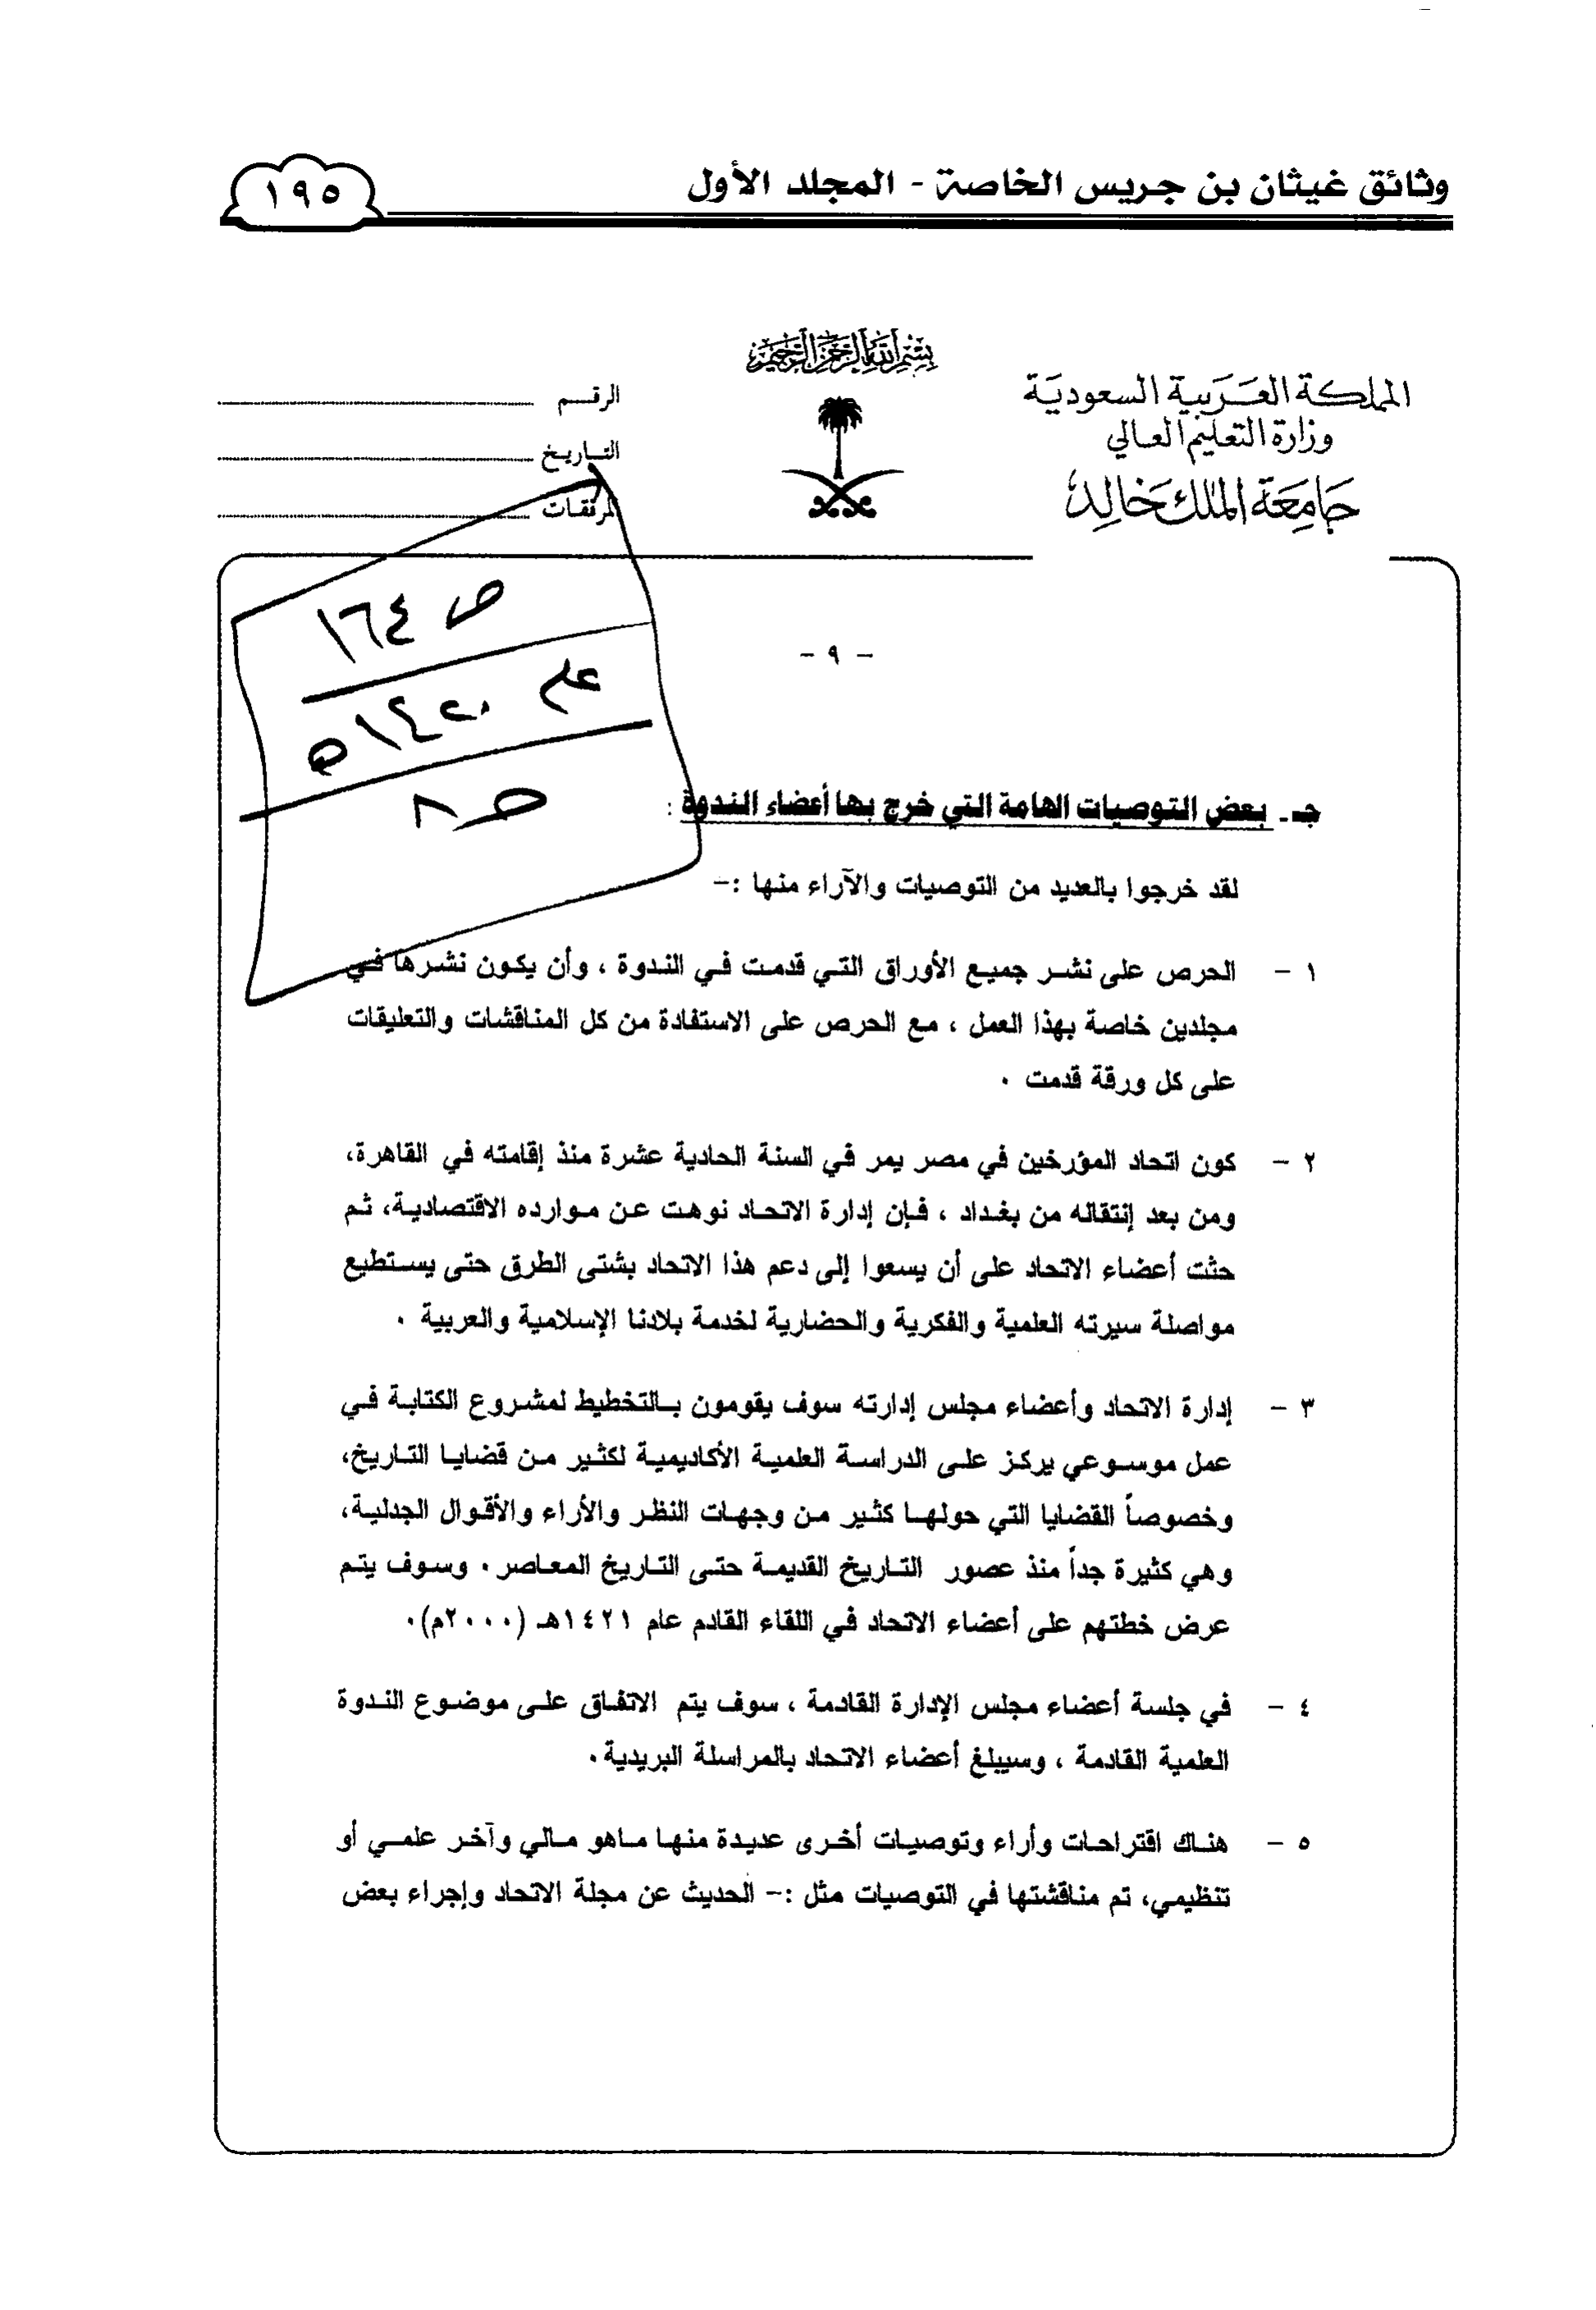 وثائق غيثان بن جريس الخاصة - المجلد الأول
١٩٥
بسم الله الرحمن الرحيم
المملكة العربية السعودية
وزارة التعليم العالي
جامعة الملك خالد
الرقم
التاريخ
المرفقات
ص ١٦٤
عام ١٤٢٠هـ
ص ٨
- ٩ -
جـ - بعض التوصيات الهامة التي خرج بها أعضاء الندوة :
لقد خرجوا بالعديد من التوصيات والآراء منها :-
١ - الحرص على نشر جميع الأوراق التي قدمت في الندوة ، وأن يكون نشرها في
مجلدين خاصة بهذا العمل ، مع الحرص على الاستفادة من كل المناقشات والتعليقات
على كل ورقة قدمت .
٢ - كون اتحاد المؤرخين في مصر يمر في السنة الحادية عشرة منذ إقامته في القاهرة،
ومن بعد إنتقاله من بغداد ، فإن إدارة الاتحاد نوهت عن موارده الاقتصادية، ثم
حثت أعضاء الاتحاد على أن يسعوا إلى دعم هذا الاتحاد بشتى الطرق حتى يستطيع
مواصلة سيرته العلمية والفكرية والحضارية لخدمة بلادنا الإسلامية والعربية .
٣ - إدارة الاتحاد وأعضاء مجلس إدارته سوف يقومون بالتخطيط لمشروع الكتابة في
عمل موسوعي يركز على الدراسة العلمية الأكاديمية لكثير من قضايا التاريخ،
وخصوصاً القضايا التي حولها كثير من وجهات النظر والأراء والأقوال الجدلية،
وهي كثيرة جداً منذ عصور التاريخ القديمة حتى التاريخ المعاصر. وسوف يتم
عرض خطتهم على أعضاء الاتحاد في اللقاء القادم عام ١٤٢١هـ (٢٠٠٠م).
٤ - في جلسة أعضاء مجلس الإدارة القادمة ، سوف يتم الاتفاق على موضوع الندوة
العلمية القادمة ، وسيبلغ أعضاء الاتحاد بالمراسلة البريدية.
٥ - هناك اقتراحات وأراء وتوصيات أخرى عديدة منها ماهو مالي وآخر علمي أو
تنظيمي، تم مناقشتها في التوصيات مثل :- الحديث عن مجلة الاتحاد وإجراء بعض